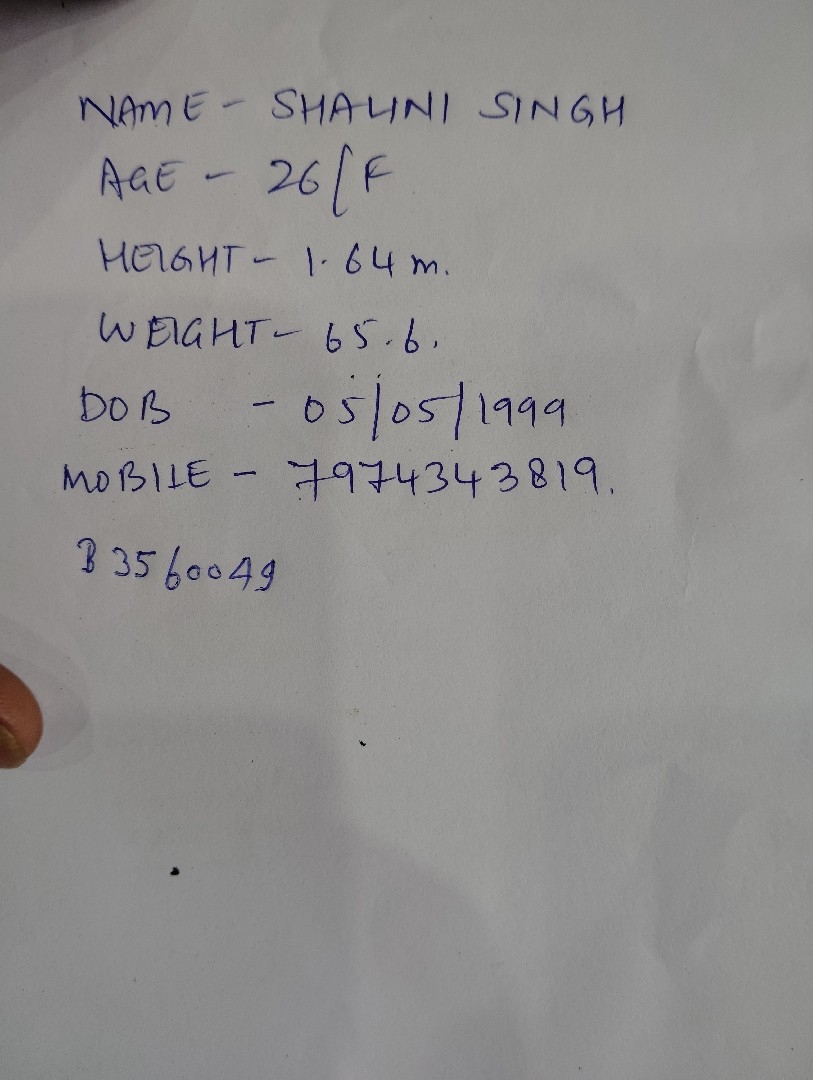 NAME - SHALINI SINGH
AGE - 26/F
HEIGHT - 1.64 m.
WEIGHT - 65.6.
DOB - 05/05/1999
MOBILE - 7974343819.
B3560049